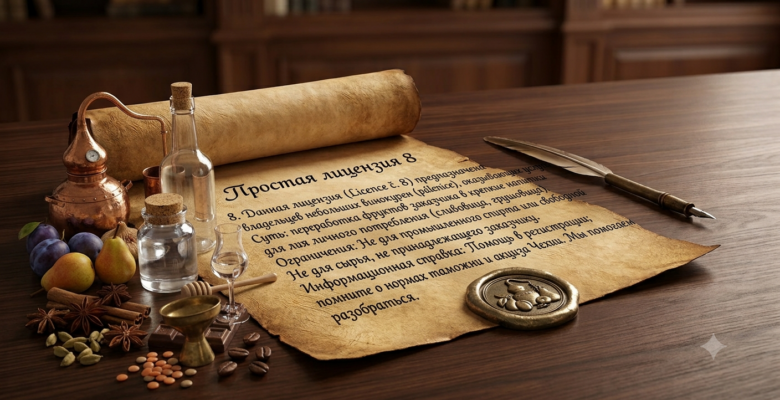 Простая лицензия 8
8. Данная лицензия (Licence č. 8) предназначена
владельцев небольших винокурен (pálenice), оказывает
Суть: переработка фруктов заказчика в крепкие напитки
для лия личного потребления (сливовица, грушовица),
Ограничения: Не для промышленного спирта или свободной
Не для сырья, не принадлежащего заказчику.
Информационная справка: Помощь в регистрации-
помните о нормах таможни и акциза Чехии. Мы помогаем
разобраться.